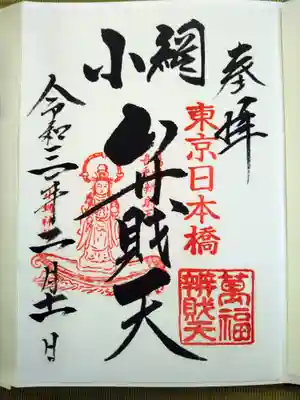 奉拝
東京日本橋
小網
弁財天
令和三年二月十一日
萬福
辨財天